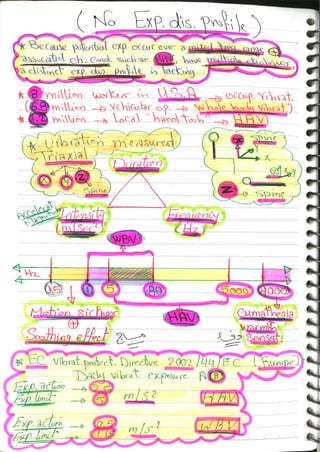 ( No Exp. dis. profile )
* Because potential exp occur over a mixed freq range ⊕
associated ch. Cond. such as have multiple
a distinct exp. dis. profile is lacking.
* 8 million workers in U.S.A → occup. vibrat.
* 6.8 million → vehicular op. → Whole body vibrat.
* 1.2 million → Local "hand tools" → HAV
* Vibration measured
Triaxial
Duration
X Y Z
Spine
Spine
X
Y
Z → Spine
Intensity
m/sec²
Frequency
Hz
WBV
Hz
0.5 1 5 80 5000
Motion sickness
⊕
Soothing effect
HAV
Sensat.
* EC vibrat. protect. Directive 2002/44/EC [Europe]
Daily vibrat exposure A(8)
Exp. action → 2.5
Exp limit → 5
m/s²
HAV
Exp. action → 0.5
Exp limit → 1.15
m/s²
WBV